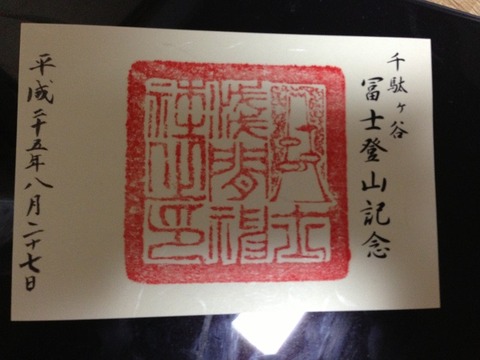 千駄ヶ谷
冨士登山記念
冨士
淺間神
社之印
平成二十五年八月二十七日